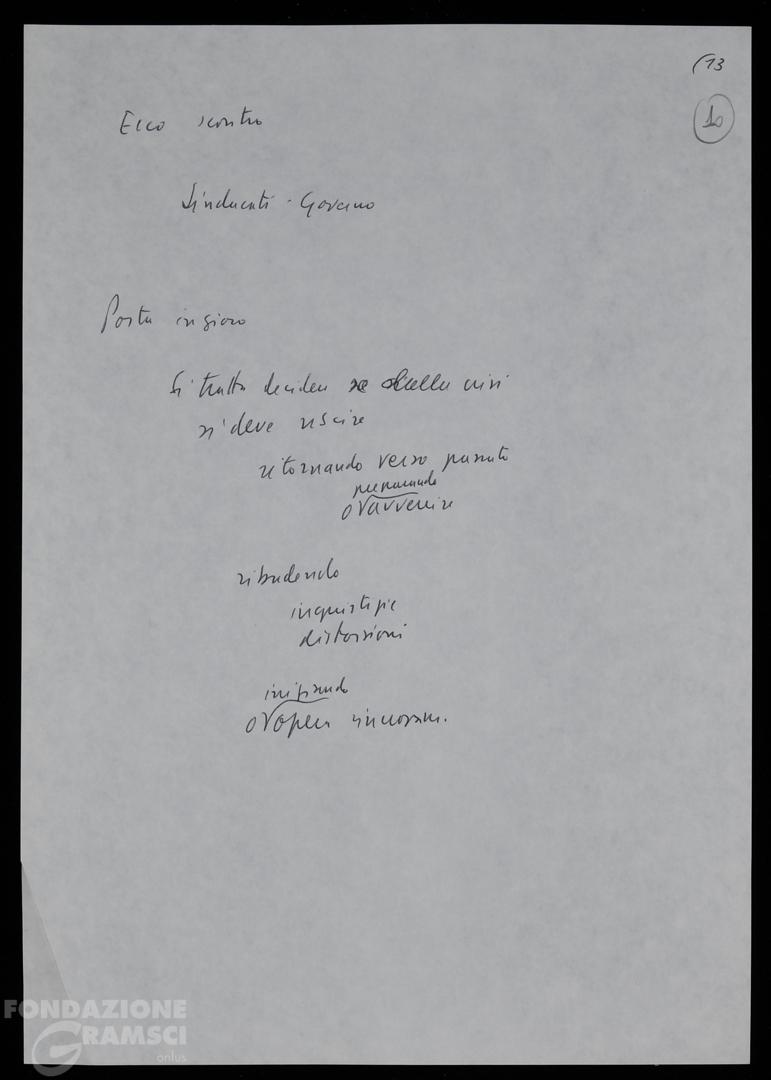 (13
10
Ecco scontro
Sindacati - Governo
Posta in gioco
Si tratta decidere se dalla crisi
si deve uscire
ritornando verso passato
preparando
o avvenire
ribadendo
ingiustizie
distorsioni
iniziando
o opera rinnovam.
FONDAZIONE
GRAMSCI
onlus